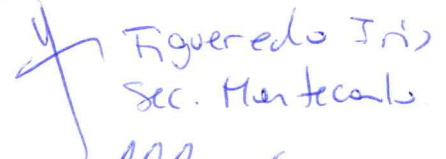 Figueredo Iris
Sec. Montecarlo